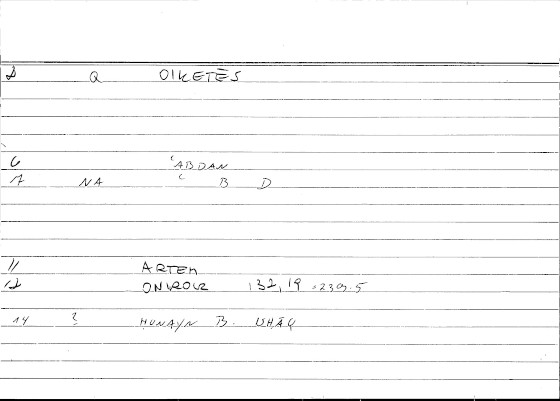 2 Q OIKETĒS
6 ʿABDAN
7 NA ʿ B D
11 ARTEM
12 ONIROCR 132,19 =239.5
14 ? HUNAYN B. ISHĀQ